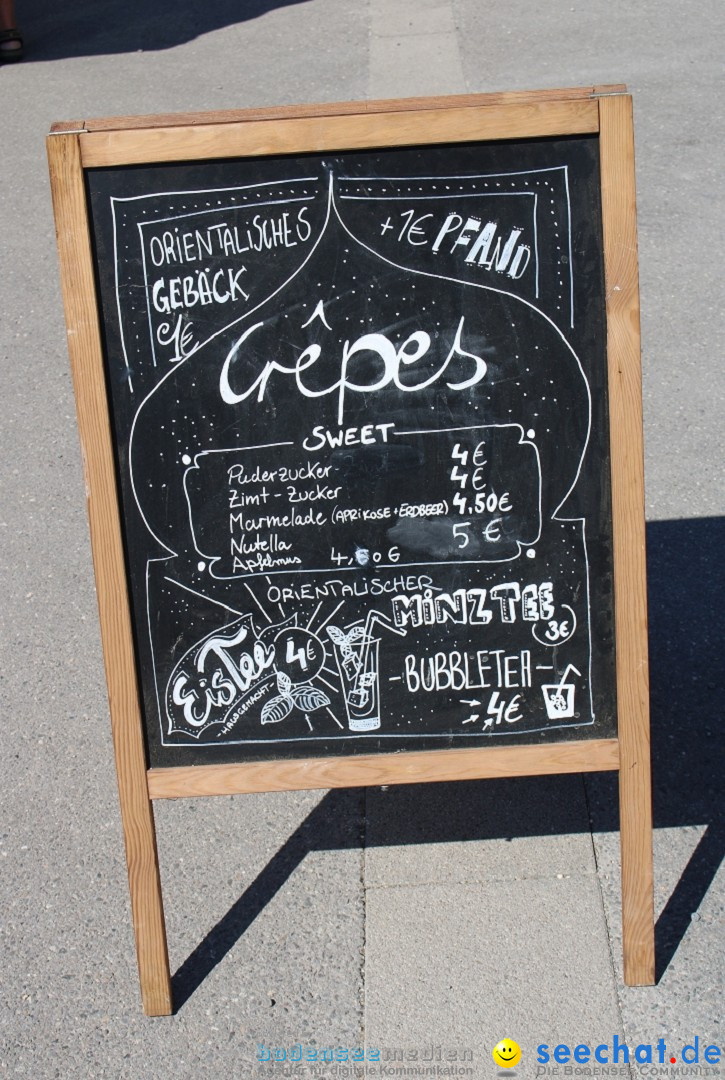 ORIENTALISCHES
GEBÄCK
1€
+1€ PFAND
Crêpes
SWEET
Puderzucker - 4€
Zimt-Zucker 4€
Marmelade (APRIKOSE+ERDBEER) 4,50€
Nutella 5 €
Apfelmus 4,50 €
ORIENTALISCHER
MINZTEE
3€
EisTee 4€
-HAUSGEMACHT-
-BUBBLETEA-
4€
bodenseemedien
Agentur für digitale Kommunikation
seechat.de
DIE BODENSEE COMMUNITY